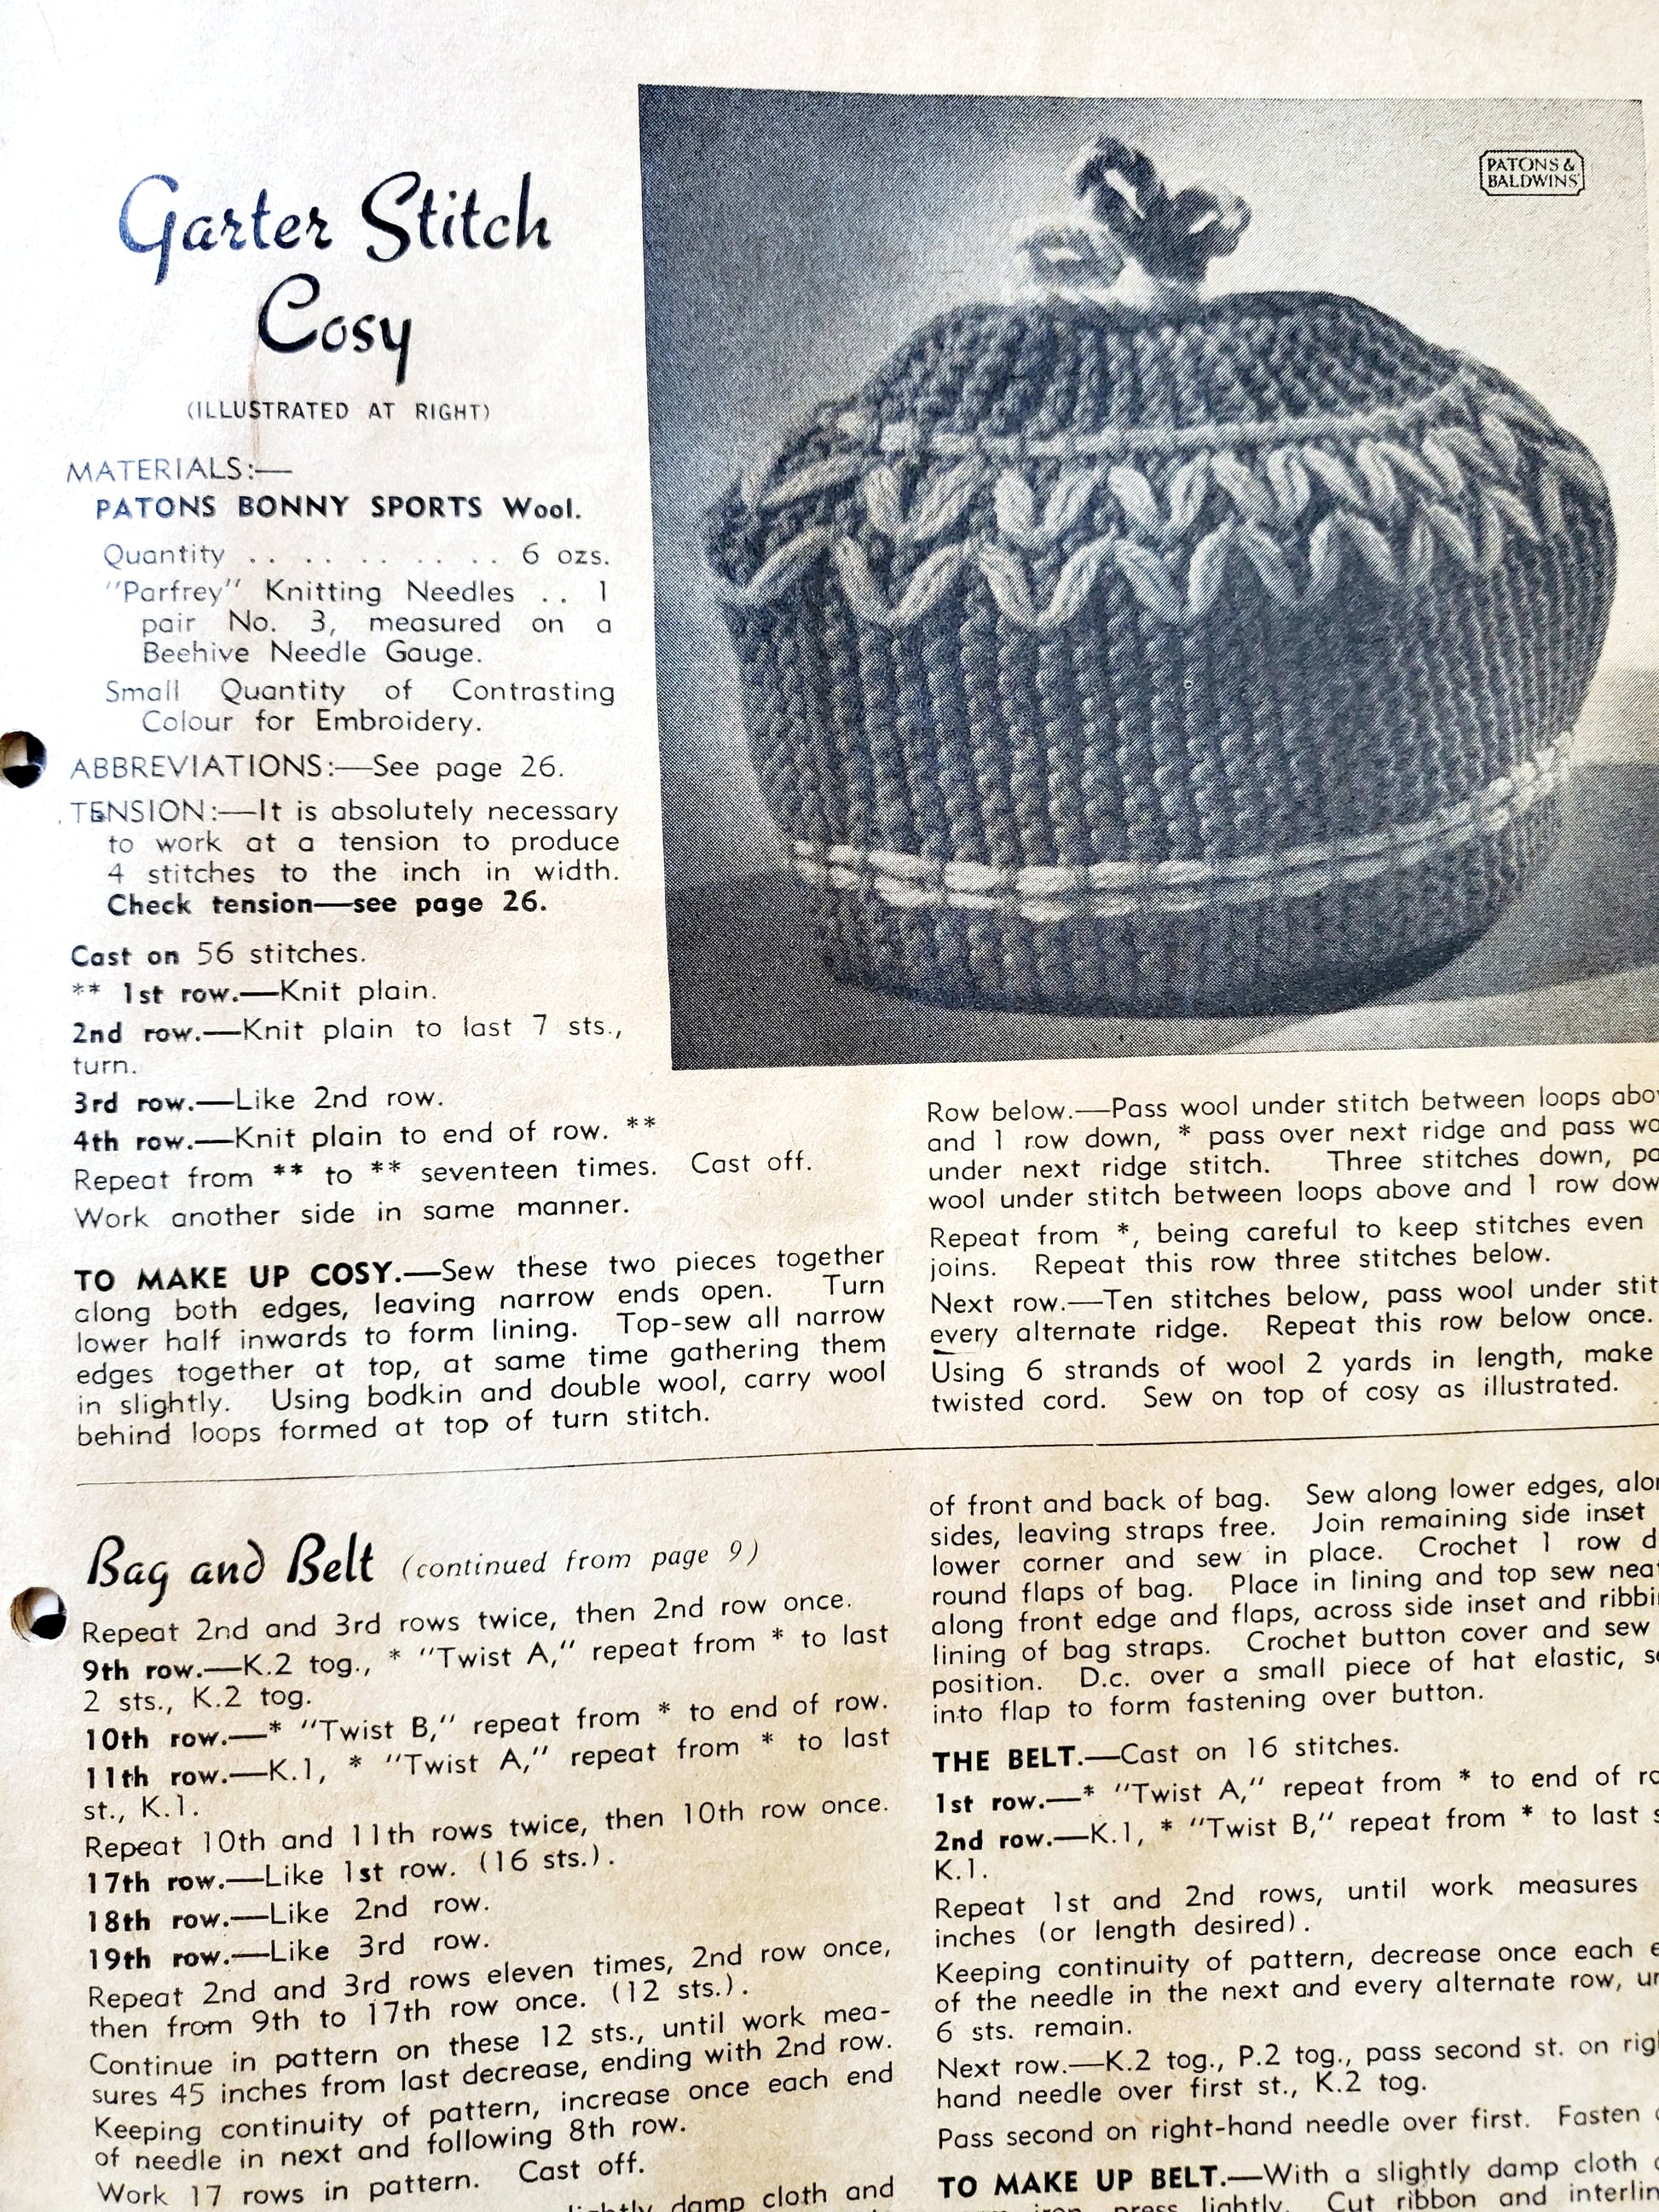 Garter Stitch
Cosy
(ILLUSTRATED AT RIGHT)
PATONS &
BALDWINS'
MATERIALS:—
PATONS BONNY SPORTS Wool.
Quantity . . . . . . . . . . 6 ozs.
"Parfrey" Knitting Needles . . 1
pair No. 3, measured on a
Beehive Needle Gauge.
Small Quantity of Contrasting
Colour for Embroidery.
ABBREVIATIONS:—See page 26.
TENSION:—It is absolutely necessary
to work at a tension to produce
4 stitches to the inch in width.
Check tension—see page 26.
Cast on 56 stitches.
** 1st row.—Knit plain.
2nd row.—Knit plain to last 7 sts.,
turn.
3rd row.—Like 2nd row.
4th row.—Knit plain to end of row. **
Repeat from ** to ** seventeen times. Cast off.
Work another side in same manner.
TO MAKE UP COSY.—Sew these two pieces together
along both edges, leaving narrow ends open. Turn
lower half inwards to form lining. Top-sew all narrow
edges together at top, at same time gathering them
in slightly. Using bodkin and double wool, carry wool
behind loops formed at top of turn stitch.
Row below.—Pass wool under stitch between loops
and 1 row down, * pass over next ridge and pass
under next ridge stitch. Three stitches down,
wool under stitch between loops above and 1 row
Repeat from *, being careful to keep stitches even
joins. Repeat this row three stitches below.
Next row.—Ten stitches below, pass wool under
every alternate ridge. Repeat this row below once.
Using 6 strands of wool 2 yards in length, make
twisted cord. Sew on top of cosy as illustrated.
Bag and Belt (continued from page 9)
Repeat 2nd and 3rd rows twice, then 2nd row once.
9th row.—K.2 tog., * "Twist A," repeat from * to last
2 sts., K.2 tog.
10th row.—* "Twist B," repeat from * to end of row.
11th row.—K.1, * "Twist A," repeat from * to last
st., K.1.
Repeat 10th and 11th rows twice, then 10th row once.
17th row.—Like 1st row. (16 sts.).
18th row.—Like 2nd row.
19th row.—Like 3rd row.
Repeat 2nd and 3rd rows eleven times, 2nd row once,
then from 9th to 17th row once. (12 sts.).
Continue in pattern on these 12 sts., until work mea-
sures 45 inches from last decrease, ending with 2nd row.
Keeping continuity of pattern, increase once each end
of needle in next and following 8th row.
Work 17 rows in pattern. Cast off.
damp cloth and
of front and back of bag. Sew along lower edges,
sides, leaving straps free. Join remaining side inset
lower corner and sew in place. Crochet 1 row
round flaps of bag. Place in lining and top sew
along front edge and flaps, across side inset and
lining of bag straps. Crochet button cover and sew
position. D.c. over a small piece of hat elastic,
into flap to form fastening over button.
THE BELT.—Cast on 16 stitches.
1st row.—* "Twist A," repeat from * to end of
2nd row.—K.1, * "Twist B," repeat from * to last
K.1.
Repeat 1st and 2nd rows, until work measures
inches (or length desired).
Keeping continuity of pattern, decrease once each
of the needle in the next and every alternate row,
6 sts. remain.
Next row.—K.2 tog., P.2 tog., pass second st. on
hand needle over first st., K.2 tog.
Pass second on right-hand needle over first. Fasten
TO MAKE UP BELT.—With a slightly damp cloth
press lightly. Cut ribbon and